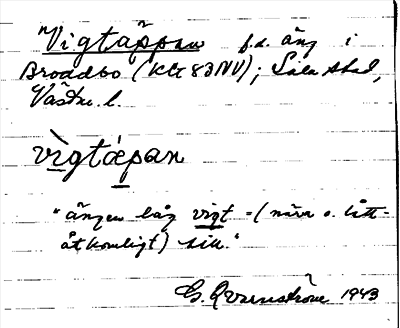 "Vigtäppan f.d. äng i
Broddbo (Kå 83NV); Sala stad,
Västm. l.
vìgtǽpan
"ängen låg vigt =(nära o. lätt-
åtkomligt) till."
G. 1943